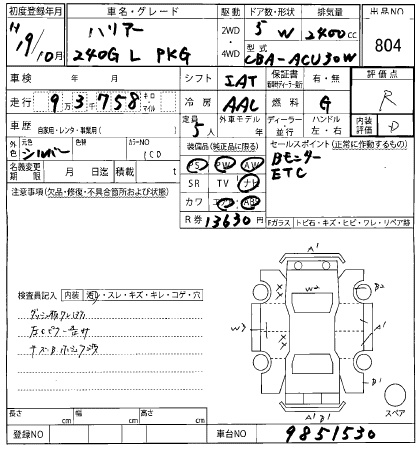 初度登録年月 車名・グレード 駆動 ドア数・形状 排気量 出品NO
H 19/10月 ハリアー 240G L PKG 2WD・4WD 5 W 2400cc 804
型式 CBA-ACU30W
車検 年 月 シフト IAT 保証書 有・無 評価点 R
走行 93千758 キロ・マイル 冷房 AAC 燃料 G 内装評価 D
車歴 自家用・レンタ・事業用( ) 定員 5人 外車モデル 年 ディーラー・並行 ハンドル 左・右
外色 元色 シルバー 色替 カラーNO (CD 装備品(純正品に限る) セールスポイント(正常に作動するもの)
名義変更期限 月 日迄 積載 t PS PW AW Bモニター
注意事項(欠品・修復・不具合箇所および状態) SR TV ナビ ETC
カワ エアB ABS
R券 13630円 Fガラス トビ石・キズ・ヒビ・ワレ・リペア跡
検査員記入 内装 スレ・キズ・キレ・コゲ・穴
A1
W2
B2
W3
A1
B1
A1 B1
スペア
長さ cm 幅 cm 高さ cm
登録NO 車台NO 9851530